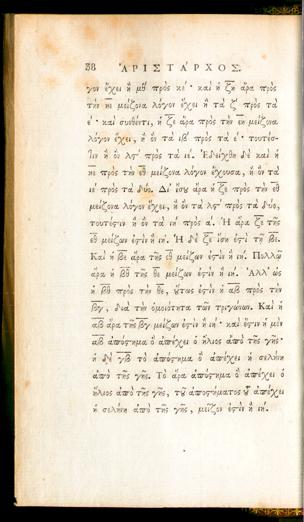 38 ἈΡΙΣΤΑ῎ΡΧΟΣ
γον ἔχει ἢ μθ πρὸς κέ· καὶ ἡ ζη ἄρα πρὸς
τὴν ηε μείζονα λόγον ἔχει ἢ τὰ ζ πρὸς τὰ
έ· καὶ συνθέντι, ἡ ζε ἄρα πρὸς τὴν εη μείζονα
λόγον ἔχει, ἢ ὃν τὰ ιβ πρὸς τὰ έ· τουτέσ-
τιν ἢ ὃν λς πρὸς τὰ ιέ. Ἐδείχθη δὲ καὶ ἡ
ηε πρὸς τὴν εθ μείζονα λόγον ἔχουσα, ἢ ὃν τὰ
ιέ πρὸς τὰ δύο. Δι' ἴσου ἄρα ἡ ζε πρὸς τὴν εθ
μείζονα λόγον ἔχει, ἢ ὃν τὰ λς πρὸς τὰ δύο,
τουτέστιν ἢ ὃν τὰ ιή πρὸς ά. Ἡ ἄρα ζε τῆς
εθ μείζων ἐστὶν ἢ ιή. Ἡ δὲ ζε ἴση ἐστὶ τῇ βε.
Καὶ ἡ βε ἄρα τῆς εθ μείζων ἐστὶν ἢ ιή. Πολλῷ
ἄρα ἡ βθ τῆς θε μείζων ἐστὶν ἢ ιή. Ἀλλ' ὡς
ἡ βθ πρὸς τὴν θε, οὕτως ἐστὶν ἡ αβ πρὸς τὴν
βγ, διὰ τὴν ὁμοιότητα τῶν τριγώνων. Καὶ ἡ
αβ ἄρα τῆς βγ μείζων ἐστὶν ἢ ιή· καὶ ἔστιν ἡ μὲν
αβ ἀπόστημα ὃ ἀπέχει ὁ ἥλιος ἀπὸ τῆς γῆς·
ἡ δὲ γβ τὸ ἀπόστημα ὃ ἀπέχει ἡ σελήνη
ἀπὸ τῆς γῆς. Τὸ ἄρα ἀπόστημα ὃ ἀπέχει ὁ
ἥλιος ἀπὸ τῆς γῆς, τοῦ ἀποστήματος οὗ ἀπέχει
ἡ σελήνη ἀπὸ τῆς γῆς, μεῖζον ἐστὶν ἢ ιή.